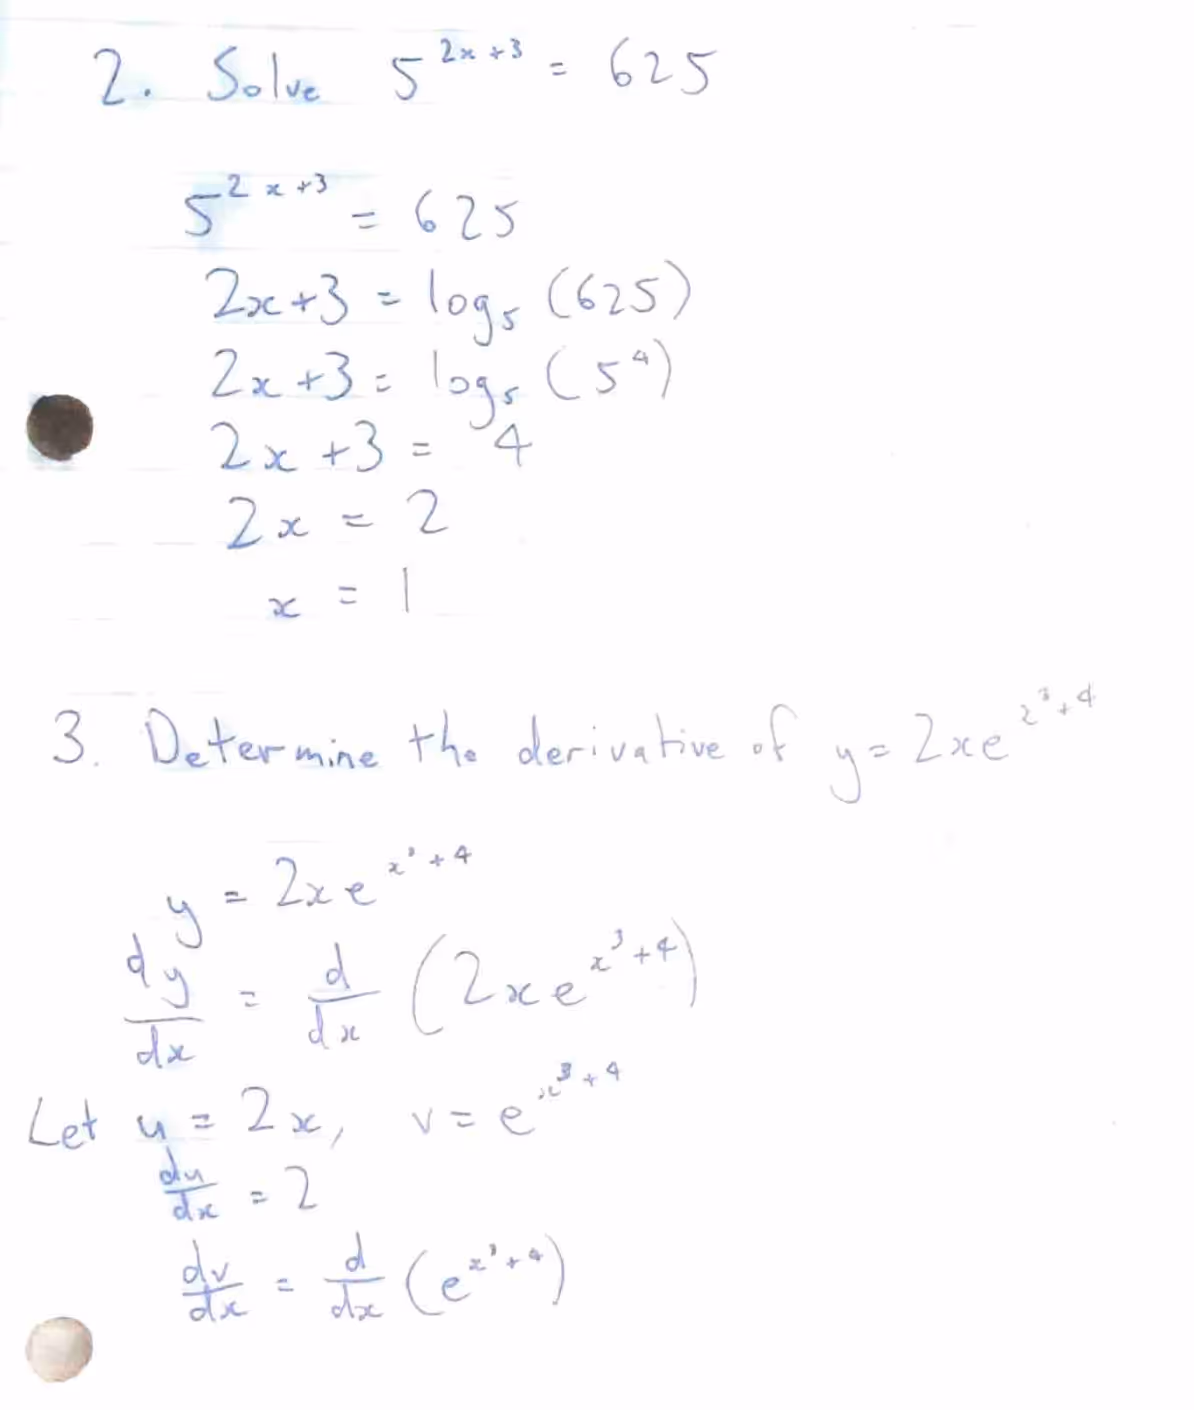 2. Solve 5^{2x+3} = 625
5^{2x+3} = 625
2x+3 = log₅(625)
2x+3 = log₅(5⁴)
2x+3 = 4
2x = 2
x = 1
3. Determine the derivative of y=2xe^{x³+4}
y = 2xe^{x³+4}
dy/dx = d/dx (2xe^{x³+4})
Let u = 2x, v = e^{x³+4}
du/dx = 2
dv/dx = d/dx (e^{x³+4})